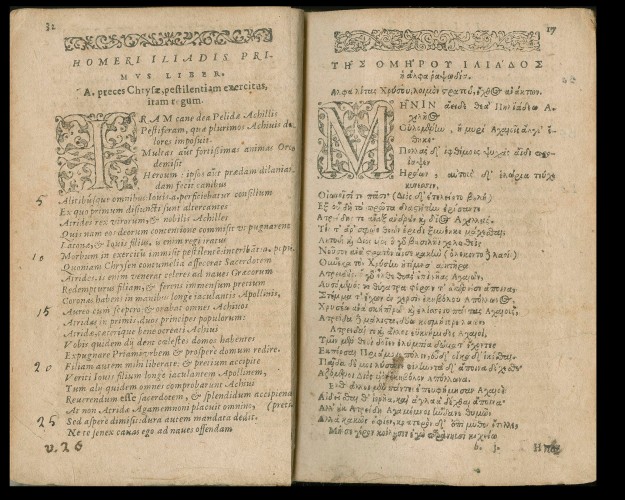 32
HOMERI ILIADIS PRI-
MVS LIBER.
A. preces Chrysæ, pestilentiam exercitus,
iram regum.
IRAM cane dea Pelidæ Achillis
Pestiferam, quæ plurimos Achiuis do-
lores imposuit
Multas aūt fortissimas animas Orco
demisit
Heroum: ipsos aūt prædam dilanian
dam fecit canibus
5 Alitibusque omnibus: Iouis.a.perficiebatur consilium
Ex quo primum disiuncti sunt altercantes
Atrides rex virorum, & nobilis Achilles
Quis nam eos deorum contentione commisit ut pugnarent
Latonæ, & Iouis filius, is enim regi iratus
10 Morbum in exercitu immisit pestiferū: interibāt.a.
Quoniam Chrysen contumelia affecerat Sacerdotem
Atrides, is enim venerat celeres ad naues Græcorum
Redempturus filiam, & ferens immensum precium
Coronas habens in manibus longe iaculantis Apollinis,
15 Aureo cum sceptro, & orabat omnes Achiuos
Atridas in primis duos principes populorum:
Atridæ, cæterique bene ocreati Achiui
Vobis quidem dij dent cœlestes domos habentes
Expugnare Priami vrbem & prospere domum redire.
20 Filiam autem mihi liberate: & precium accipite
Veriti Iouis filium longe iaculantem Apollinem,
Tum alij quidem omnes comprobarunt Achiui
Reuerendum esse sacerdotem, & splendidum accipiend
At non Atridæ Agamemnoni placuit omnino,
25 Sed aspere dimisit: dura autem mandata dedit.
Ne te senex cauas ego ad naues offendam
v. 26
17
ΤΗΣ ΟΜΗΡΟΥ ΙΛΙΑΔΟΣ
ἡ ἄλφα ῥαψωδία.
Ἄλφα λιτὰς Χρύσου, λοιμὸν στρατοῦ, ἔχθος ἀνάκτων.
ΜΗΝΙΝ ἄειδε θεὰ Πηληϊάδεω Ἀ-
χιλῆος
Οὐλομένην, ἣ μυρί Ἀχαιοῖς ἄλγε ἔ-
θηκε·
Πολλὰς δ' ἰφθίμους ψυχὰς ἄϊδι προ-
ΐαψεν
Ἡρώων· αὐτοὺς δ' ἑλώρια τεῦχε
κύνεσσιν,
Οἰωνοῖσί τε πᾶσι· (Διὸς δ' ἐτελείετο βουλὴ)
Ἐξ οὗ δὴ τὰ πρῶτα διαστήτην ἐρίσαντε
Ἀτρείδης τε ἄναξ ἀνδρῶν καὶ δῖος Ἀχιλλεύς.
Τίς τ' ἄρ σφωε θεῶν ἔριδι ξυνέηκε μάχεσθαι;
Λητοῦς καὶ Διὸς υἱὸς· ὁ γὰρ βασιλῆϊ χολωθεὶς
Νοῦσον ἀνὰ στρατὸν ὦρσε κακὴν (ὀλέκοντο δὲ λαοί)
Οὕνεκα τὸν Χρύσην ἠτίμησ' ἀρητῆρα
Ἀτρείδης· ὁ γὰρ ἦλθε θοὰς ἐπὶ νῆας Ἀχαιῶν,
Λυσόμενός τε θύγατρα φέρων τ' ἀπερείσι' ἄποινα·
Στέμμα τ' ἔχων ἐν χερσὶν ἑκηβόλου Ἀπόλλωνος,
Χρυσέῳ ἀνὰ σκήπτρῳ· καὶ ἐλίσσετο πάντας Ἀχαιοὺς,
Ἀτρείδα δὲ μάλιστα, δύω κοσμήτορε λαῶν·
Ἀτρεῖδαί τε καὶ ἄλλοι ἐϋκνήμιδες Ἀχαιοὶ,
Ὑμῖν μὲν θεοὶ δοῖεν ὀλύμπια δώματ' ἔχοντες
Ἐκπέρσαι Πριάμοιο πόλιν, εὖ δ' οἴκαδ' ἱκέσθαι·
Παῖδα δέ μοι λύσατε φίλην, τὰ δ' ἄποινα δέχεσθε
Ἁζόμενοι Διὸς υἱὸν ἑκηβόλον Ἀπόλλωνα.
Ἔνθ' ἄλλοι μὲν πάντες ἐπευφήμησαν Ἀχαιοὶ
Αἰδεῖσθαί θ' ἱερῆα, καὶ ἀγλαὰ δέχθαι ἄποινα·
Ἀλλ' οὐκ Ἀτρείδῃ Ἀγαμέμνονι ἥνδανε θυμῷ
Ἀλλὰ κακῶς ἀφίει, κρατερὸν δ' ἐπὶ μῦθον ἔτελλε,
Μή σε γέρον κοίλῃσιν ἐγὼ παρὰ νηυσὶ κιχείω
b. j.